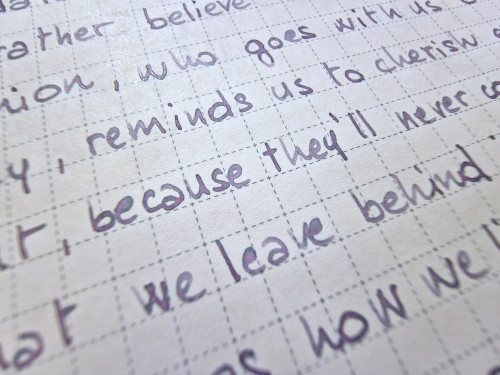 rather believe
nion, who goes with us
y, reminds us to cherish
because they'll never
at we leave behind
how we